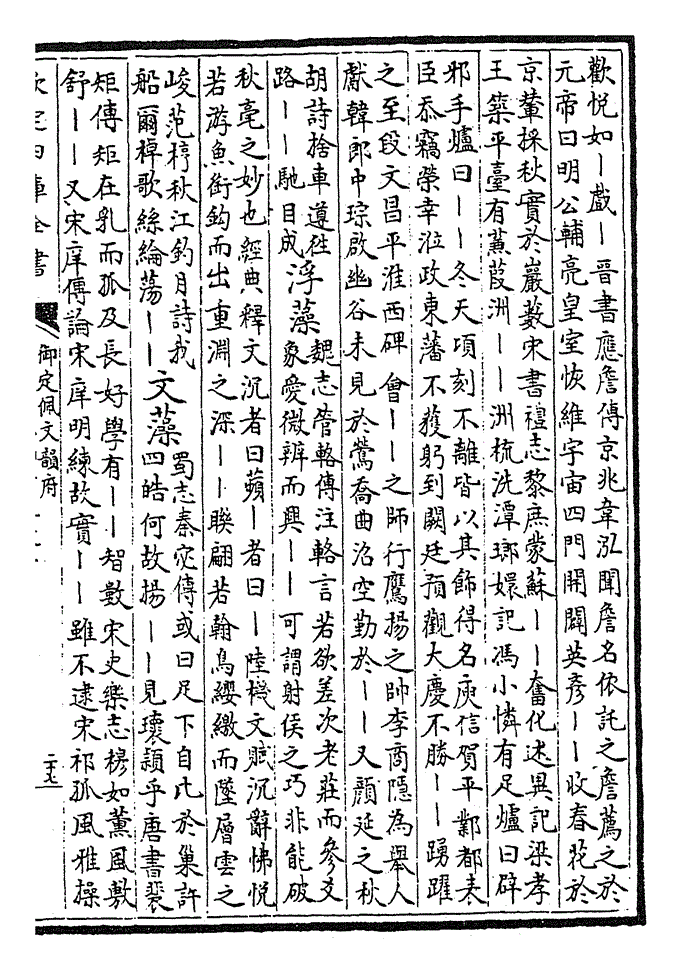 歡悅如丨戲丨晉書應詹傳京兆韋泓聞詹名依託之詹薦之於
元帝曰明公輔亮皇室恢維宇宙四門開闢英彥丨丨收春花於
京輦採秋實於巖藪宋書禮志黎庶蒙蘇丨丨奮化述異記梁孝
王築平臺有蒹葭洲丨丨洲梳洗潭瑯嬛記馮小憐有足爐曰辟
邪手爐曰丨丨冬天頃刻不離皆以其飾得名庾信賀平鄴都表
臣忝竊榮幸涖政東藩不獲躬到闕廷預觀大慶不勝丨丨踴躍
之至段文昌平淮西碑會丨丨之師行鷹揚之帥李商隱為舉人
獻韓郎中琮啟幽谷未見於鶯喬曲沼空勤於丨丨又顏延之秋
胡詩捨車遵往
路丨丨馳目成
浮藻
魏志管輅傳注輅言若欲差次老莊而參爻
象愛微辨而興丨丨可謂射侯之巧非能破
秋毫之妙也經典釋文沉者曰蘋丨者曰丨陸機文賦沉辭怫悅
若游魚銜鉤而出重淵之深丨丨聯翩若翰鳥纓繳而墜層雲之
峻范梈秋江釣月詩我
船爾棹歌絲綸蕩丨丨
文藻
蜀志秦宓傳或曰足下自比於巢許
四皓何故揚丨丨見瓌穎乎唐書裴
矩傳矩在乳而孤及長好學有丨丨智數宋史樂志穆如薰風敷
舒丨丨又宋庠傳論宋庠明練故實丨丨雖不逮宋祁孤風雅操
欽定四庫全書
御定佩文韻府